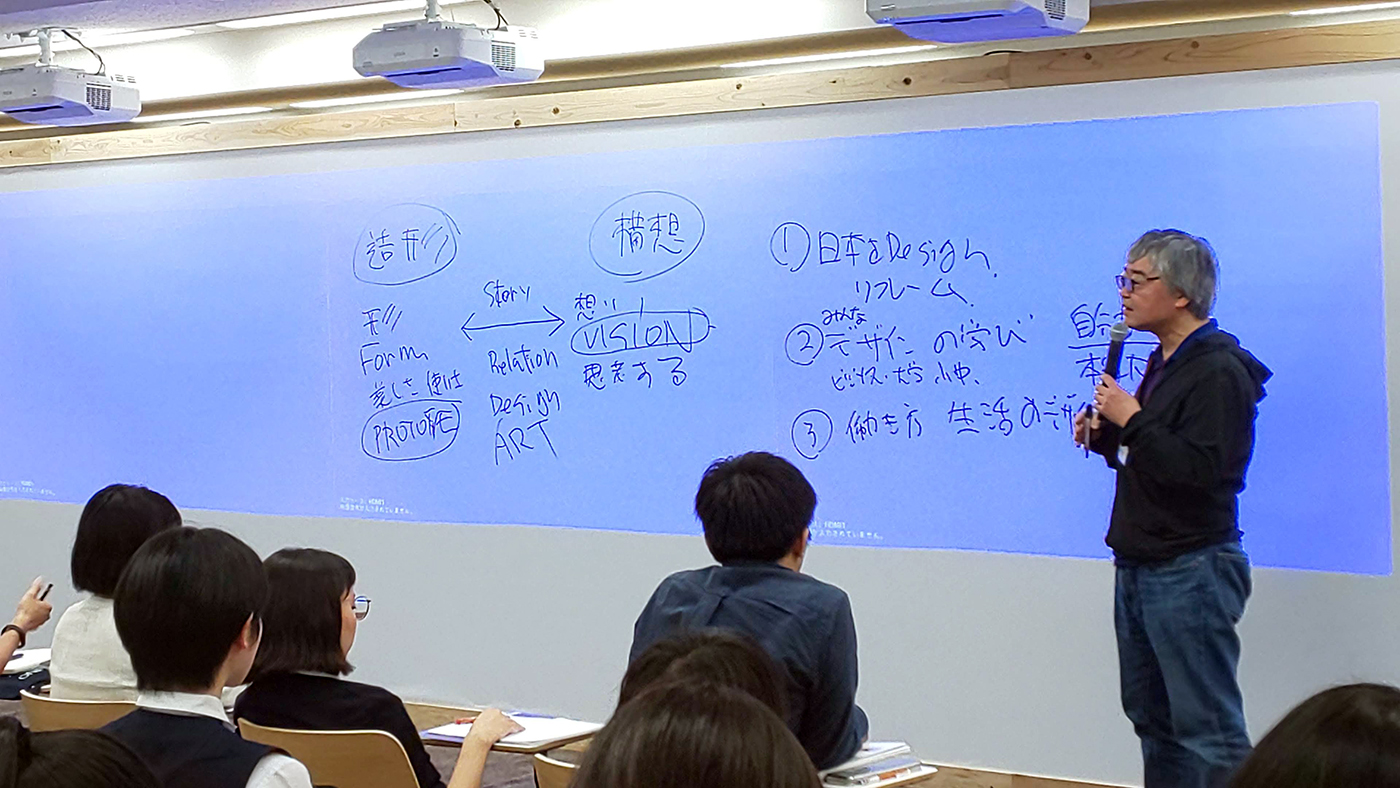 造形
構想
形
Form
美しさ 使い
PROTOTYPE
Story
Relation
Design
ART
想い
VISION
思考する
① 日本をDesign.
リフレーム.
みんな
② デザインの学び
ビジネス・
③ 働き方 生活のデザ
自分